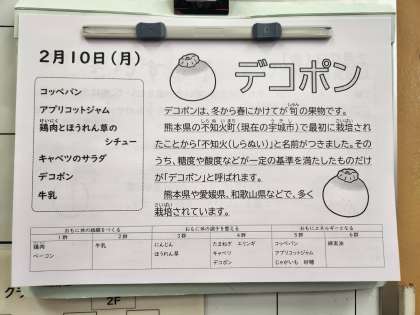 2月10日(月)
デコポン
コッペパン
アプリコットジャム
鶏肉とほうれん草の
シチュー
キャベツのサラダ
デコポン
牛乳
デコポンは、冬から春にかけてが旬の果物です。
熊本県の不知火町(現在の宇城市)で最初に栽培され
たことから「不知火(しらぬい)」と名前がつきました。その
うち、糖度や酸度などが一定の基準を満たしたものだけ
が「デコポン」と呼ばれます。
熊本県や愛媛県、和歌山県などで、多く
栽培されています。
おもに体の組織をつくる おもに体の調子を整える おもにエネルギーとなる
1群 2群 3群 4群 5群 6群
鶏肉 牛乳 にんじん たまねぎ エリンギ コッペパン
ベーコン ほうれん草 キャベツ アプリコットジャム
デコポン じゃがいも 砂糖
2F